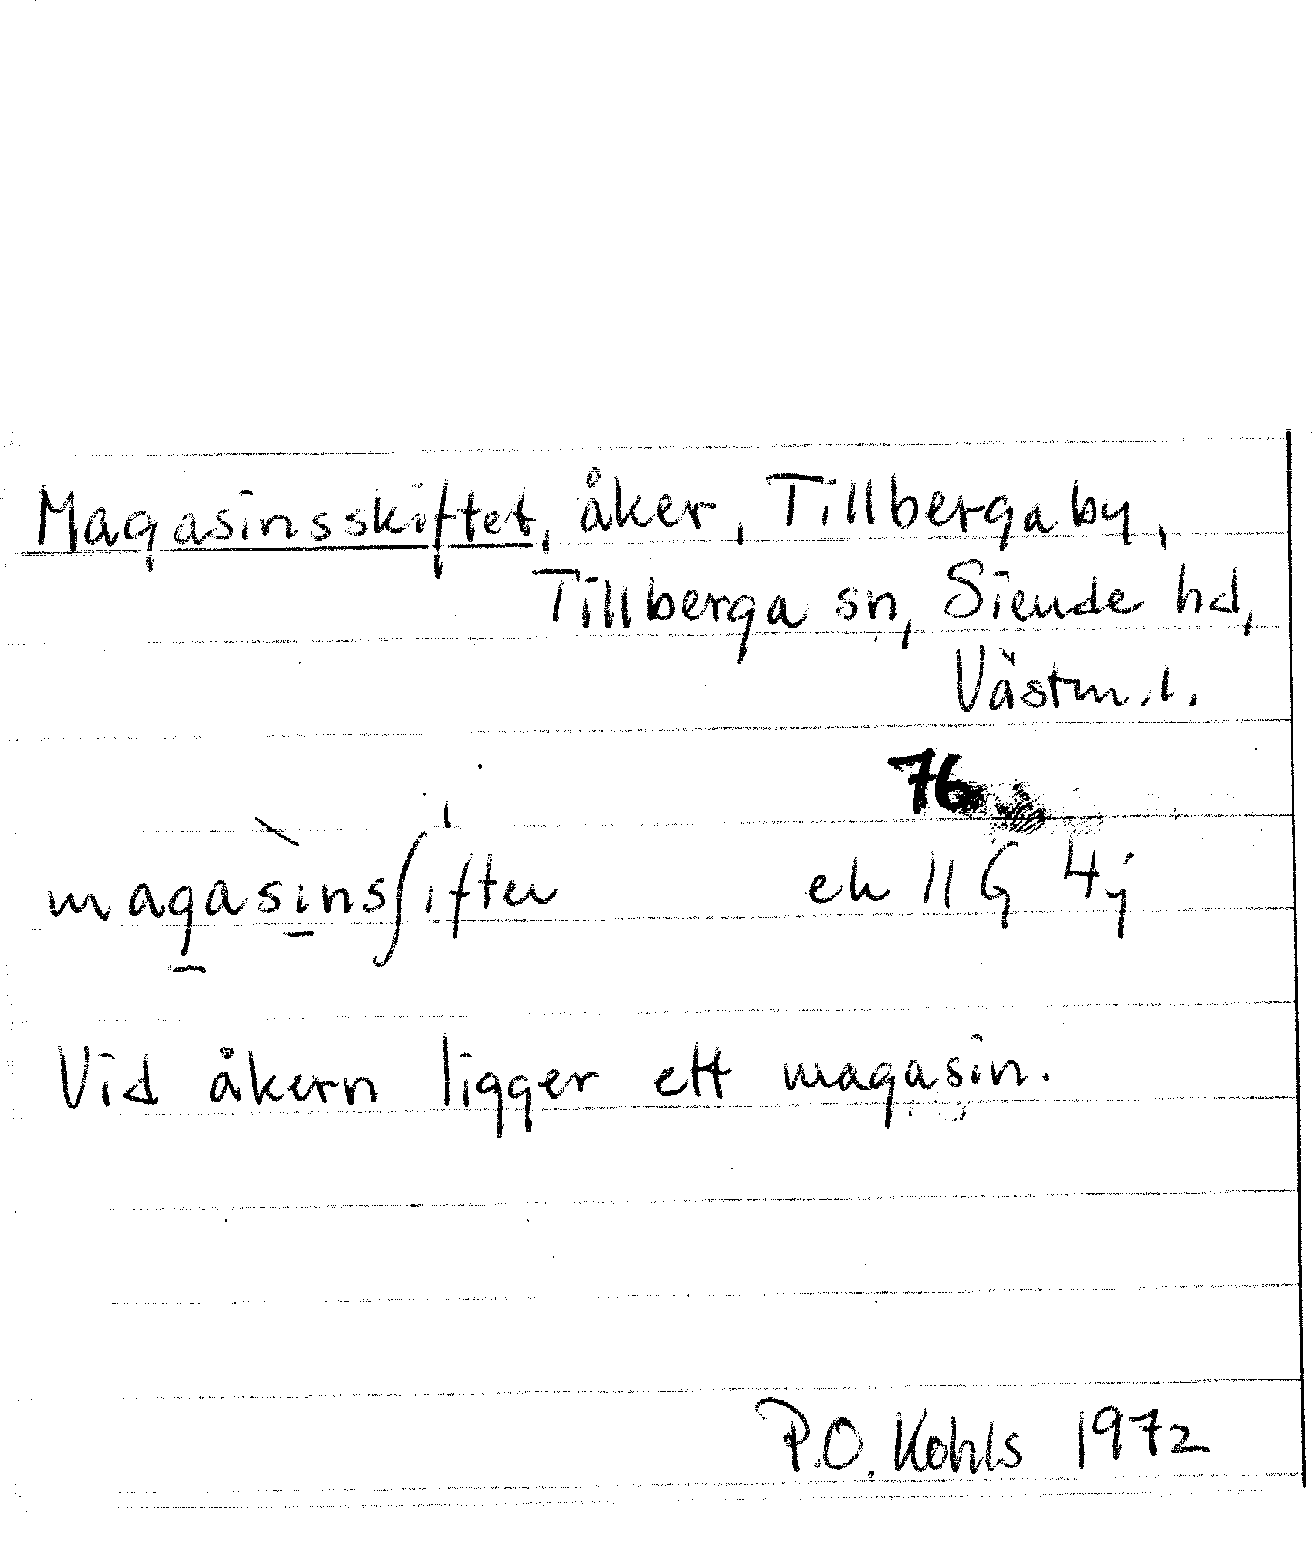 Magasinsskiftet, åker, Tillberga by,
Tillberga sn, Siende hd,
Västm. l.
76
magasinsʃiftet ek 11 G 4j
Vid åkern ligger ett magasin.
P.O. Kohls 1972